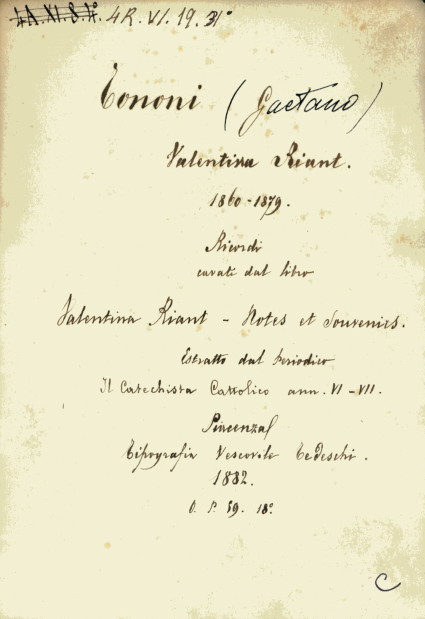 4A.XI.8.14° 4R.VI.19.31°
Tononi (Gaetano)
Valentina Riant.
1860-1879.
Ricordi
cavati dal libro
Valentina Riant - Notes et Souvenirs.
Estratto dal periodico
Il Catechista Cattolico ann. VI-VII.
Piacenza
Tipografia Vescovile Tedeschi.
1882.
O. P. 59. 18°
C